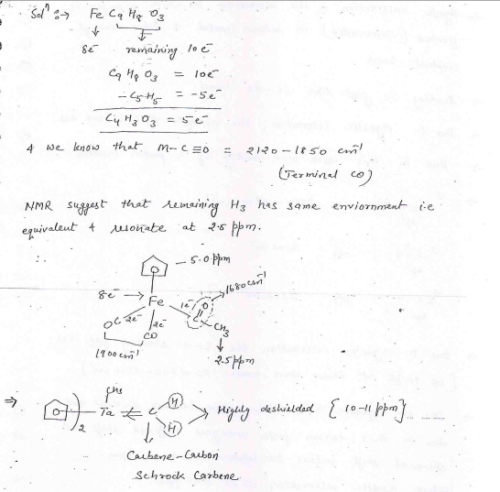 Solⁿ :→ Fe C₉ H₈ O₃
8e⁻ remaining 10e⁻
C₉ H₈ O₃ = 10e⁻
- C₅H₅ = -5e⁻
C₄ H₃ O₃ = 5e⁻
& we know that M-C≡O = 2120-1850 cm⁻¹
(Terminal CO)
NMR suggest that remaining H₃ has same enviornment i.e
equivalent & resonate at 2.5 ppm.
∴
5.0 ppm
8e⁻ → Fe 1e⁻ C O 1680 cm⁻¹
OC 2e⁻ 2e⁻ CO CH₃
1900 cm⁻¹ 2.5 ppm
⇒ )₂ Ta CH₃ C H H → Highly deshielded {10-11 ppm}
Carbene-Carbon
Schrock Carbene